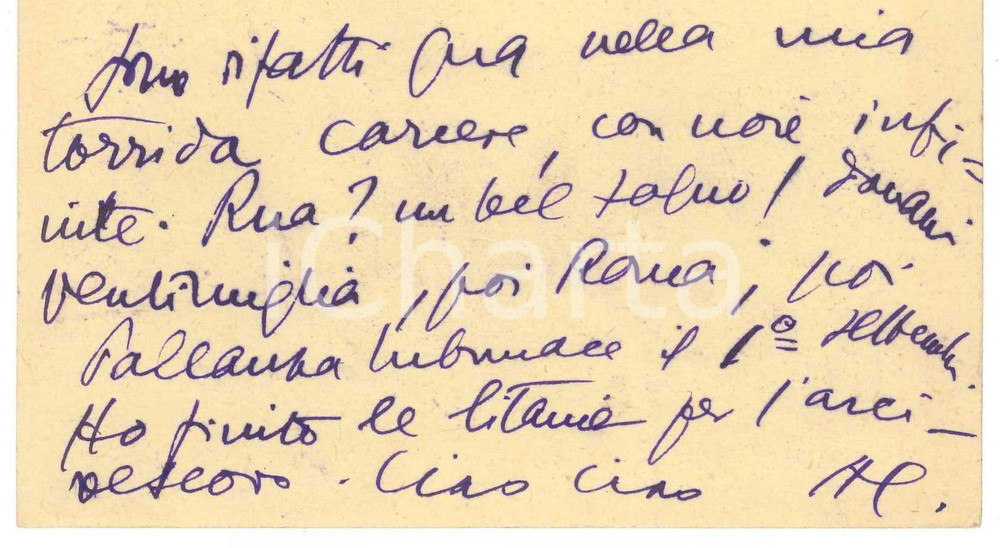 sono rifatti qua nella mia
torrida carcere, con noie infi-
nite. Rua? un bel sogno! Domani
Ventimiglia, poi Roma; poi
Pallanza il 1º settembre.
Ho finito le litanie per l'arci-
vescovo. Ciao ciao
iCharta